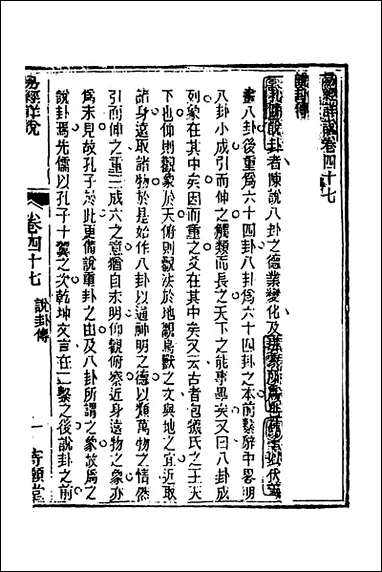 易經詳說卷四十七
說卦傳
說卦者陳說八卦之德業變化及法象所爲也孔子以伏羲
畫八卦後重爲六十四卦八卦爲六十四卦之本前繫辭中畧明
八卦小成引而伸之觸類而長之天下之能事畢矣又曰八卦成
列象在其中矣因而重之爻在其中矣又云古者包犧氏之王天
下也仰則觀象於天俯則觀法於地觀鳥獸之文與地之宜近取
諸身遠取諸物於是始作八卦以通神明之德以類萬物之情然
引而伸之重三成六之意猶自未明仰觀俯察近身遠物之象亦
爲未見故孔子於此更備說重卦之由及八卦所謂之象故爲之
說卦焉先儒以孔子十翼之次乾坤文言在二繫之後說卦之前
易經詳說 卷四十七 說卦傳 一 寄願堂